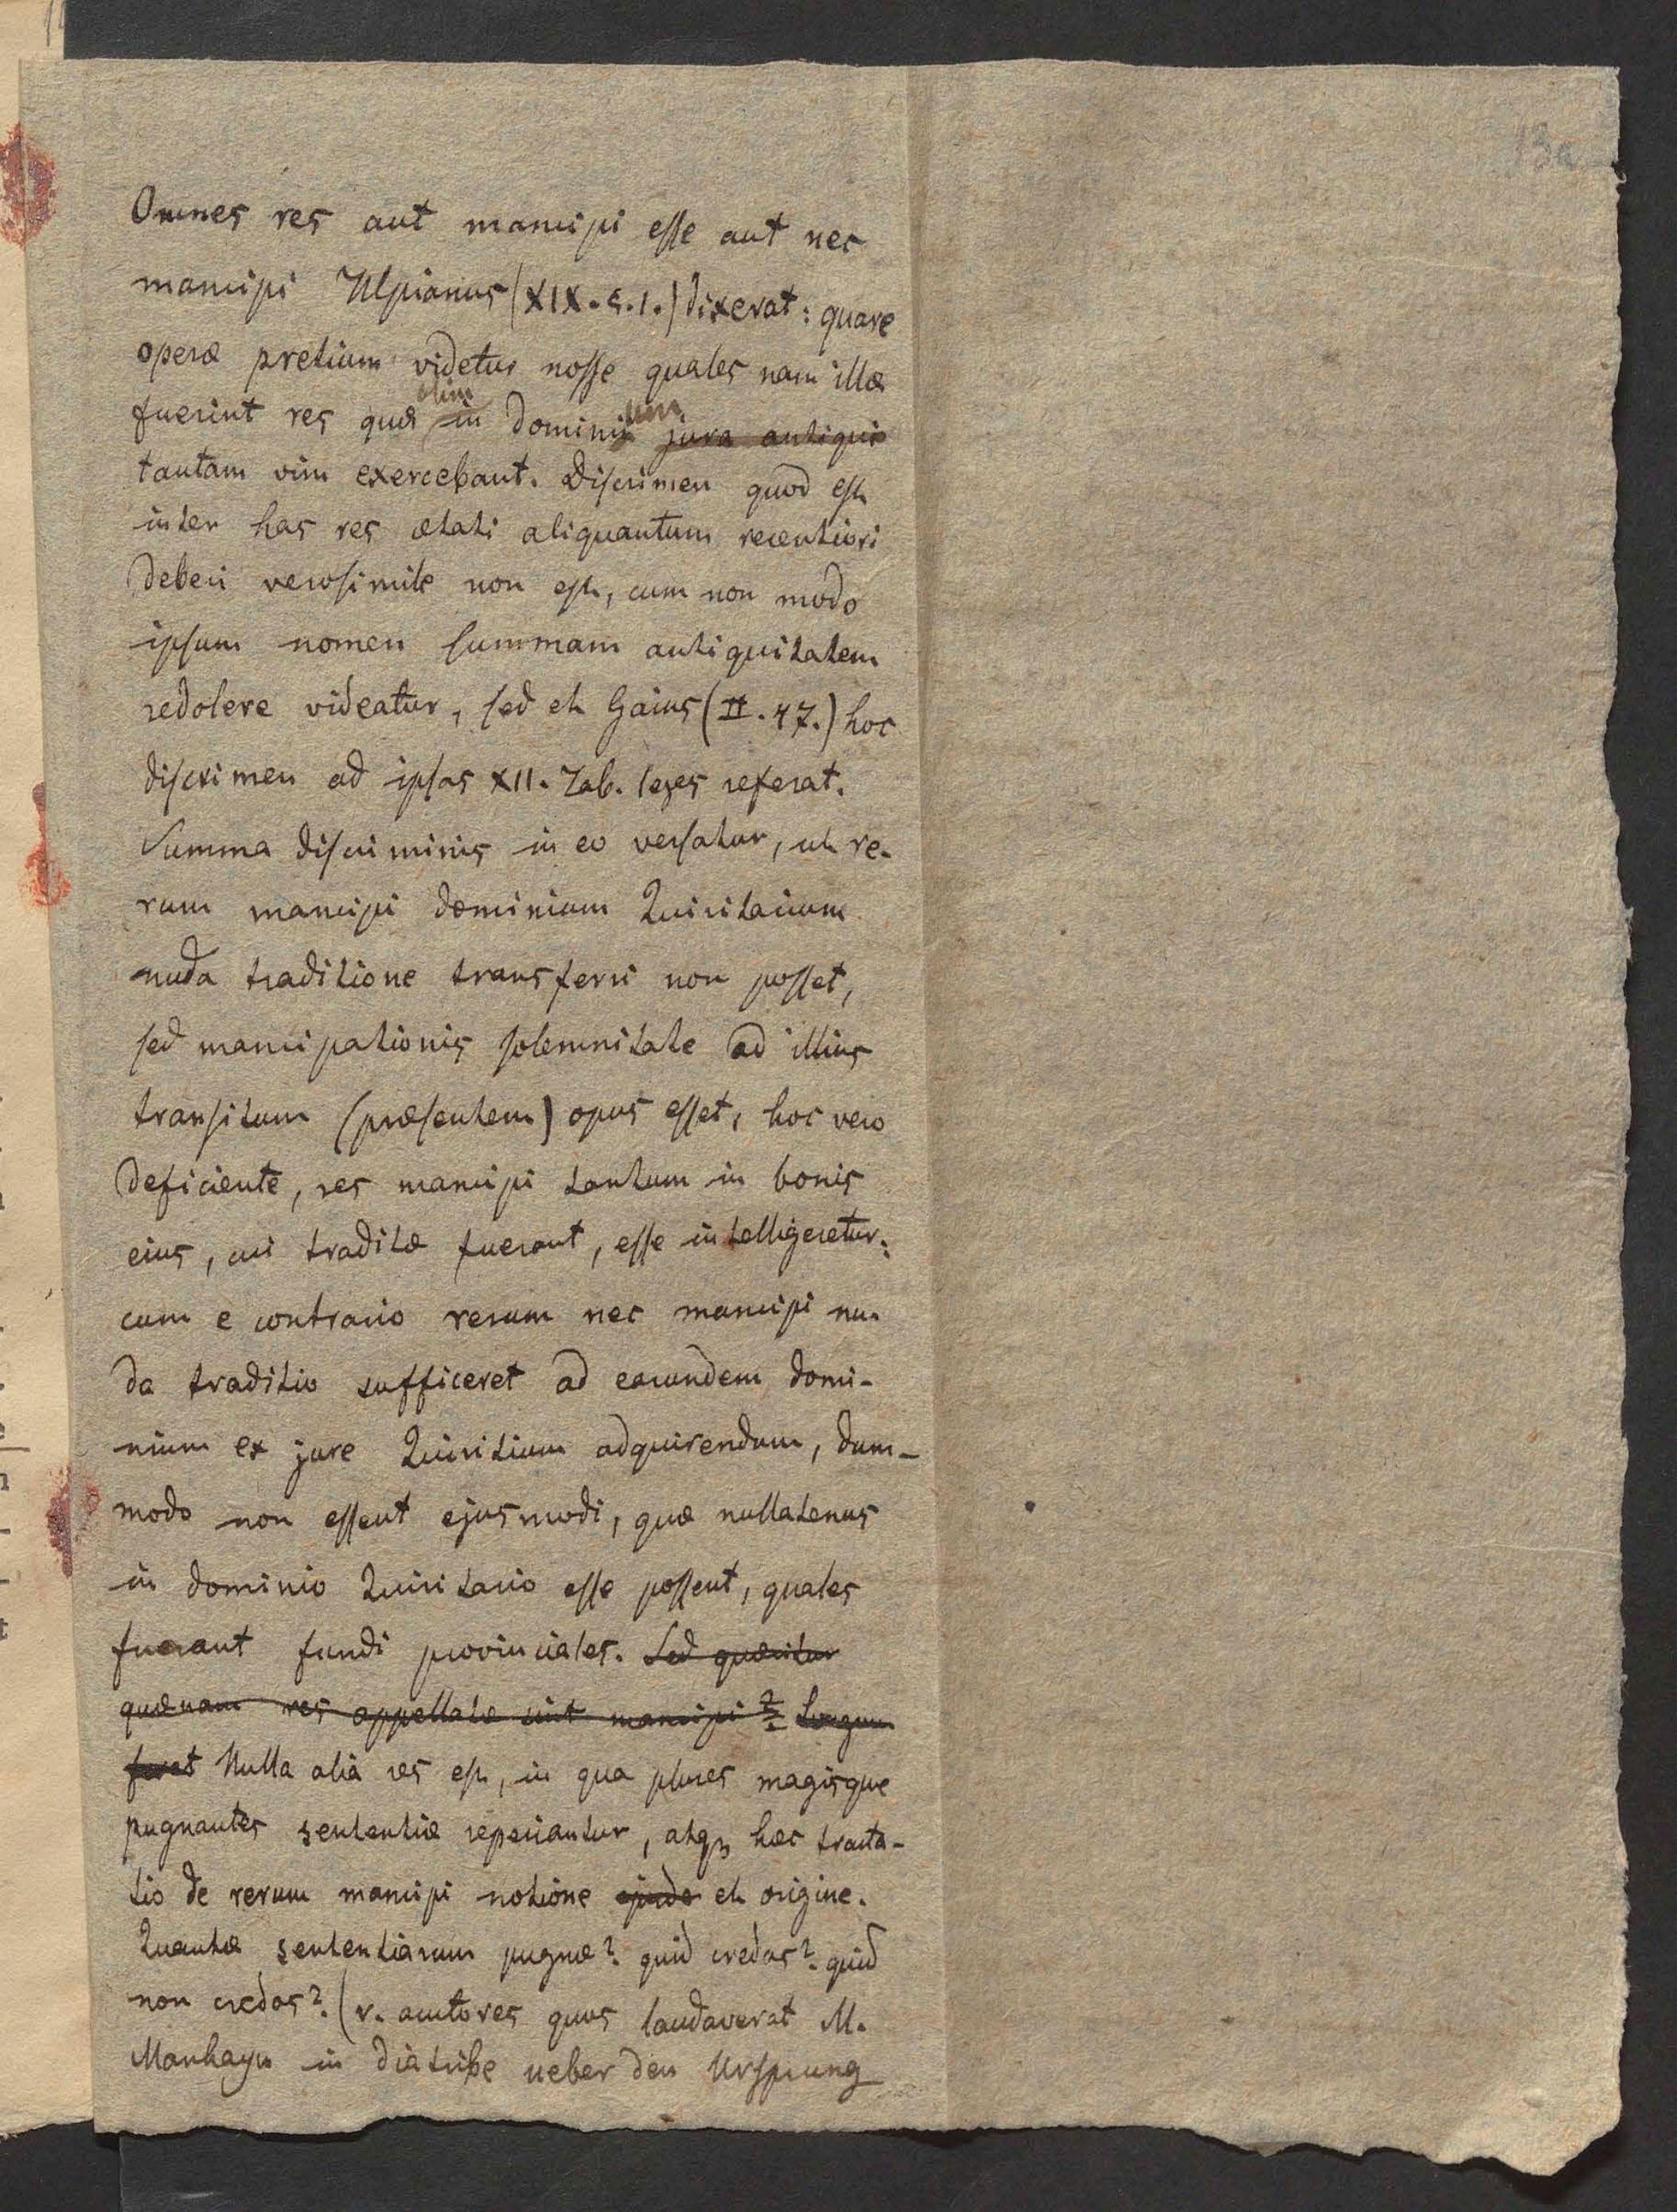 13a
Omnes res aut mancipi esse aut nec
mancipi Ulpianus (XIX. §. 1.) dixerat: quare
operæ pretium videtur nosse quales nam illæ
olim um
fuerint res quæ in domini jura antiqui
tantam vim exercebant. Discrimen quod est
inter has res ætati aliquantum recentiori
deberi verosimile non est, cum non modo
ipsum nomen summam antiquitatem
redolere videatur, sed et Gaius (II. 47.) hoc
discrimen ad ipsas XII. Tab. leges referat.
Summa discriminis in eo versatur, ut re-
rum mancipi dominium Quiritarium
nuda traditione transferri non posset,
sed mancipationis solemnitate ad illius
transitum (præsentem) opus esset, hoc vero
deficiente, res mancipi tantum in bonis
eius, cui traditæ fuerant, esse intelligeretur:
cum e contrario rerum nec mancipi nu-
da traditio sufficeret ad earundem domi-
nium ex jure Quiritium adquirendum, dum-
modo non essent ejusmodi, quæ nullatenus
in dominio Quiritario esse possent, quales
fuerant fundi provinciales. Sed quæritur
quænam res appellatæ sint mancipi? Longum
foret Nulla alia res est, in qua plures magisque
pugnantes sententiæ reperiantur, atq, hæc tracta-
tio de rerum mancipi notione et origine.
Quantæ sententiarum pugnæ? quid credas? quid
non credas? (v. auctores quos laudaverat M.
Manhayn in diatribe ueber den Ursprung